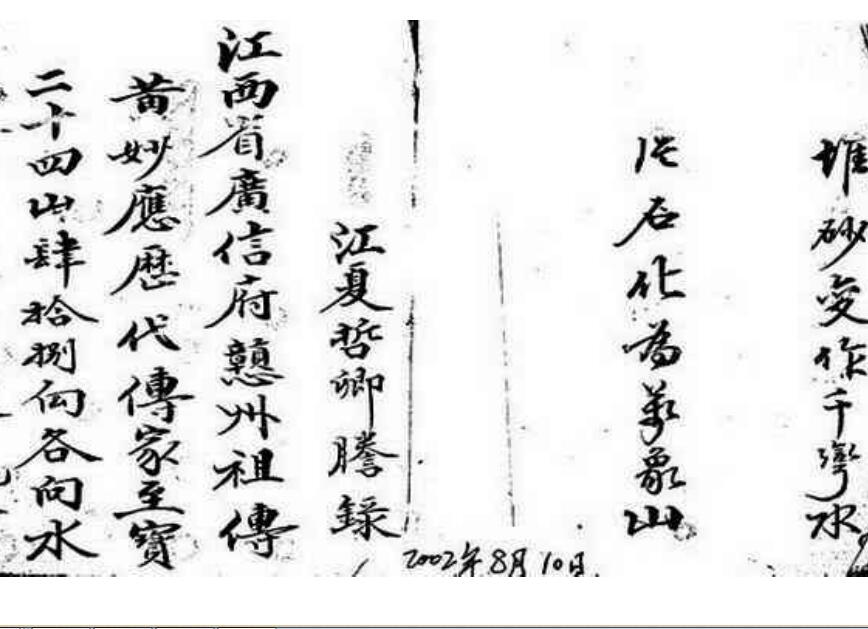 堆砂变作千灣水
片石化為萬象山
江夏哲卿謄錄
江西省廣信府州祖傳
黄妙應歷代傳家至寶
二十四山肆拾捌各向水
2002年8月10日